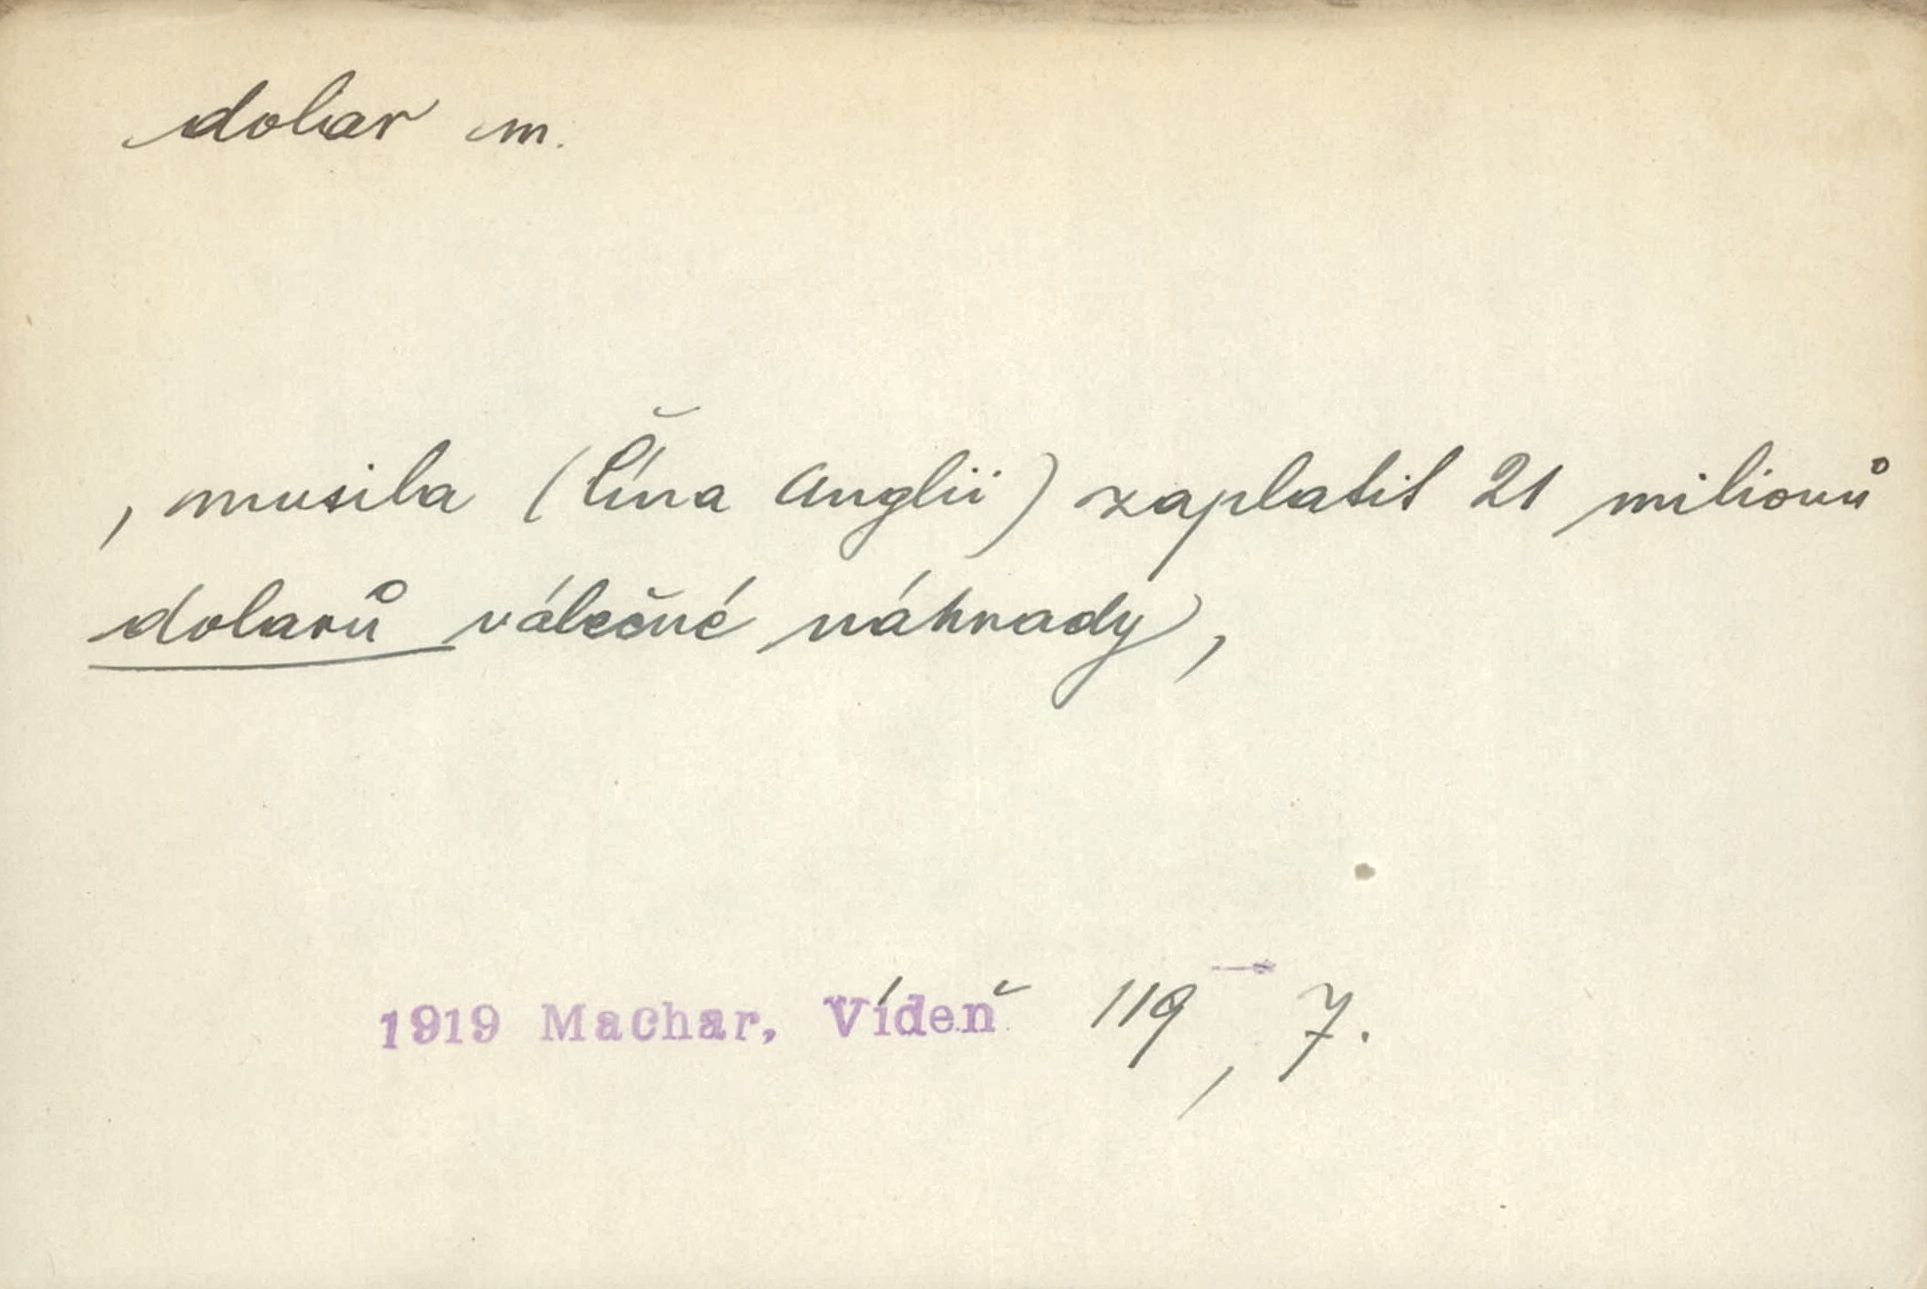 dolar m.
, musila (Čína Anglii) zaplatit 21 milionů
dolarů válečné náhrady,
1919 Machar, Vídeň 119, 7.